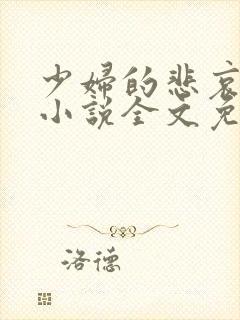 少妇的悲哀
小説全文免
洛德